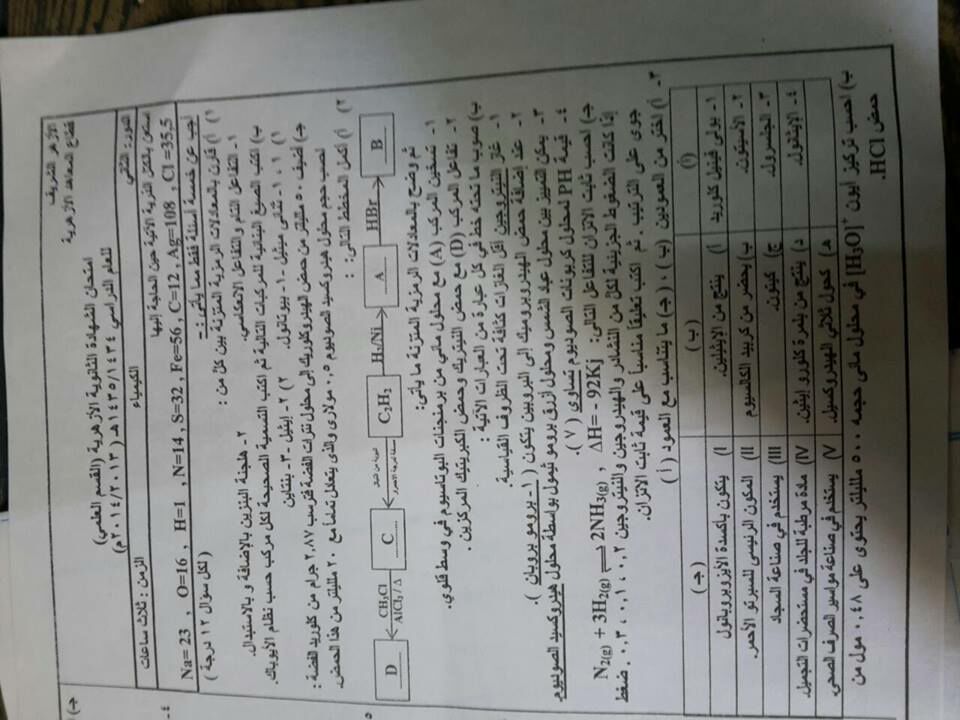 الأزهر الشريف
قطاع المعاهد الأزهرية
امتحان الشهادة الثانوية الأزهرية (القسم العلمي)
للعام الدراسي ١٤٣٤/١٤٣٥هـ (٢٠١٣/٢٠١٤م)
الدور : الثاني
الكيمياء
الزمن : ثلاث ساعات
استعن بالكتل الذرية الآتية حين الحاجة إليها
Na= 23 , O=16 , H=1 , N=14 , S=32 , Fe=56 , C=12 , Ag=108 , Cl =35.5
أجب عن خمسة أسئلة فقط مما يأتي :-
( لكل سؤال ١٢ درجة )
١) أ) قارن بالمعادلات الرمزية المتزنة بين كل من :
١- التفاعل التام والتفاعل الانعكاسي.
٢- هلجنة البنزين بالإضافة و بالاستبدال.
ب) اكتب الصيغ البنائية للمركبات التالية ثم اكتب التسمية الصحيحة لكل مركب حسب نظام الأيوباك.
١) ١ ، ١- ثنائي ميثيل -١- بيوتانول.
٢) ٢- إيثيل -٣- بنتاين
ج) أضيف ٥٠ ملليلتر من حمض الهيدروكلوريك إلى محلول نترات الفضة فترسب ٢,٨٧ جرام من كلوريد الفضة :
احسب حجم محلول هيدروكسيد الصوديوم ٠,٥ مولاري والذي يتعادل تماما مع ٢٠ ملليلتر من هذا الحمض.
٢) أ) أكمل المخطط التالي :
D
CH₃Cl
AlCl₃ / Δ
C
C₂H₂
H₂/Ni
A
HBr
B
ثم وضح بالمعادلات الرمزية المتزنة ما يأتي:
١- تسخين المركب (A) مع محلول مائي من برمنجنات البوتاسيوم في وسط قلوي.
٢- تفاعل المركب (D) مع حمض النيتريك وحمض الكبريتيك المركزين .
ب) صوب ما تحته خط في كل عبارة من العبارات الآتية :
١- غاز النيتروجين أقل الغازات كثافة تحت الظروف القياسية.
٢- عند إضافة حمض الهيدروبروميك الى البروبين يتكون ( ١- برومو بروبان ).
٣- يمكن التمييز بين محلول عباد الشمس ومحلول أزرق بروموثيمول بواسطة محلول هيدروكسيد الصوديوم.
٤- قيمة PH لمحلول كربونات الصوديوم تساوي ( ٧ ).
ج) احسب ثابت الاتزان للتفاعل التالي:
N₂(g) + 3H₂(g) ⇌ 2NH₃(g) , ΔH= - 92Kj
إذا كانت الضغوط الجزئية لكل من النشادر والهيدروجين والنيتروجين ٠,٢ ، ٠,١ ، ٠,٣ ضغط
جوى على الترتيب . ثم اكتب تعليقاً مناسباً على قيمة ثابت الاتزان.
٣- أ) اختر من العمودين (ب) ، (ج) ما يتناسب مع العمود ( أ )
(أ) (ب) (ج)
١- بولي فينيل كلوريد أ) ينتج من الإيثيلين. I) يتكون بأكسدة الأيزوبروبانول
٢- الأسيتون. ب) يحضر من كربيد الكالسيوم II) المكون الرئيسي للسبرتو الأحمر.
٣- الجلسرول. ج) كيتون. III) يستخدم في صناعة السجاد
٤- الإيثانول. د) ينتج من بلمرة كلورو إيثين. IV) مادة مرطبة للجلد في مستحضرات التجميل.
هـ) كحول ثلاثي الهيدروكسيل. V) يستخدم في صناعة مواسير الصرف الصحي
ب) احسب تركيز أيون [H₃O]⁺ في محلول مائي حجمه ٥٠٠ ملليلتر يحتوي على ٠,٤٨ مول من
حمض HCl.
ج)
٤-
٥